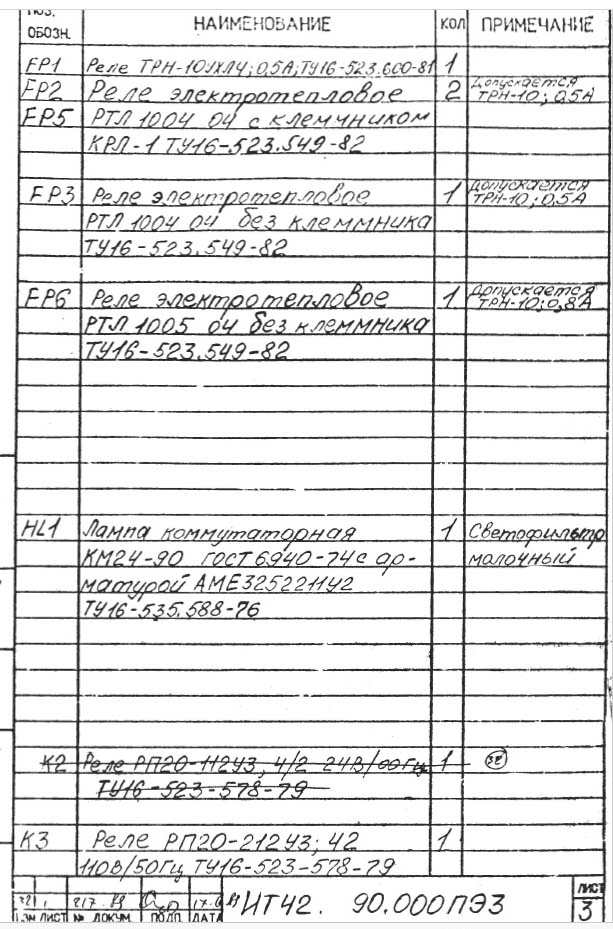 ПОЗ. ОБОЗН. НАИМЕНОВАНИЕ КОЛ ПРИМЕЧАНИЕ
FP1 Реле ТРН-10УХЛ4; 0,5А; ТУ16-523.600-81 1
FP2 Реле электротепловое 2 Допускается ТРН-10; 0,5А
FP5 РТЛ 1004 04 с клеммником
КРЛ-1 ТУ16-523.549-82
FP3 Реле электротепловое 1 Допускается ТРН-10; 0,5А
РТЛ 1004 04 без клеммника
ТУ16-523.549-82
FP6 Реле электротепловое 1 Допускается ТРН-10; 0,8А
РТЛ 1005 04 без клеммника
ТУ16-523.549-82
HL1 Лампа коммутаторная 1 Светофильтр
КМ24-90 ГОСТ 6940-74 с ар- молочный
матурой АМЕ325221У2
ТУ16-535.588-76
К2 Реле РП20-112У3, 4/2 24В/ 1
ТУ16-523-578-79
К3 Реле РП20-212У3; 42 1
110В/50Гц ТУ16-523-578-79
ИЗМ ЛИСТ № ДОКУМ. ПОДП. ДАТА ИТ42. 90.000ПЭ3 ЛИСТ
3